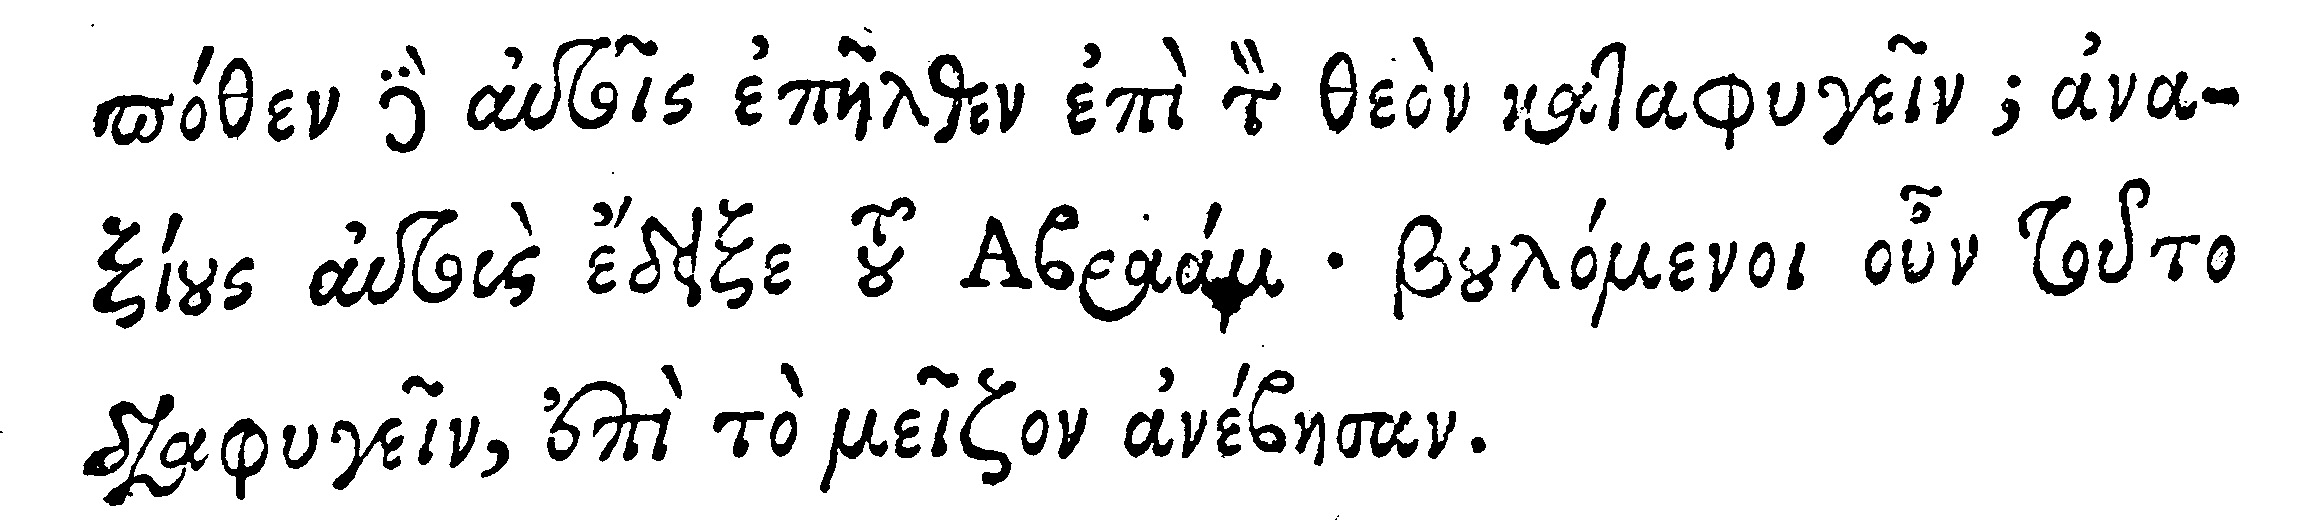 πόθεν δὲ αὐτοῖς ἐπῆλθεν ἐπὶ τὸν θεὸν καταφυγεῖν; ἀνα-
ξίους αὐτοὺς ἔδειξε τοῦ Αβραάμ. βουλόμενοι οὖν τοῦτο
διαφυγεῖν, ἐπὶ τὸ μεῖζον ἀνέβησαν.